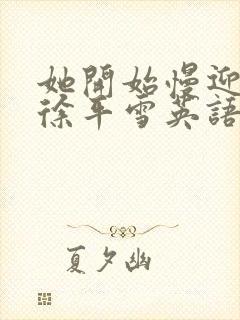 她開始慢迎
徐平雪英語
夏夕幽